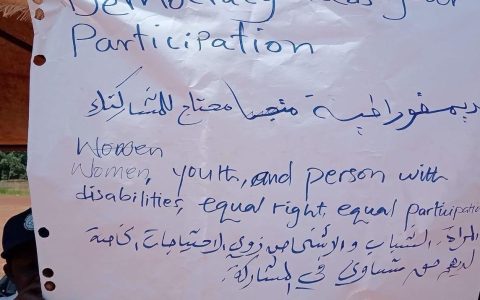 Democracy needs your
Participation
ديمقوراطية محتاج للمشاركتك
Women
Women, youth, and person with
disabilities, equal right, equal participation
المراة الشباب والاشخاص زوي الاحتياجات الخاصة
لديهم حق متساوي في المشاركة